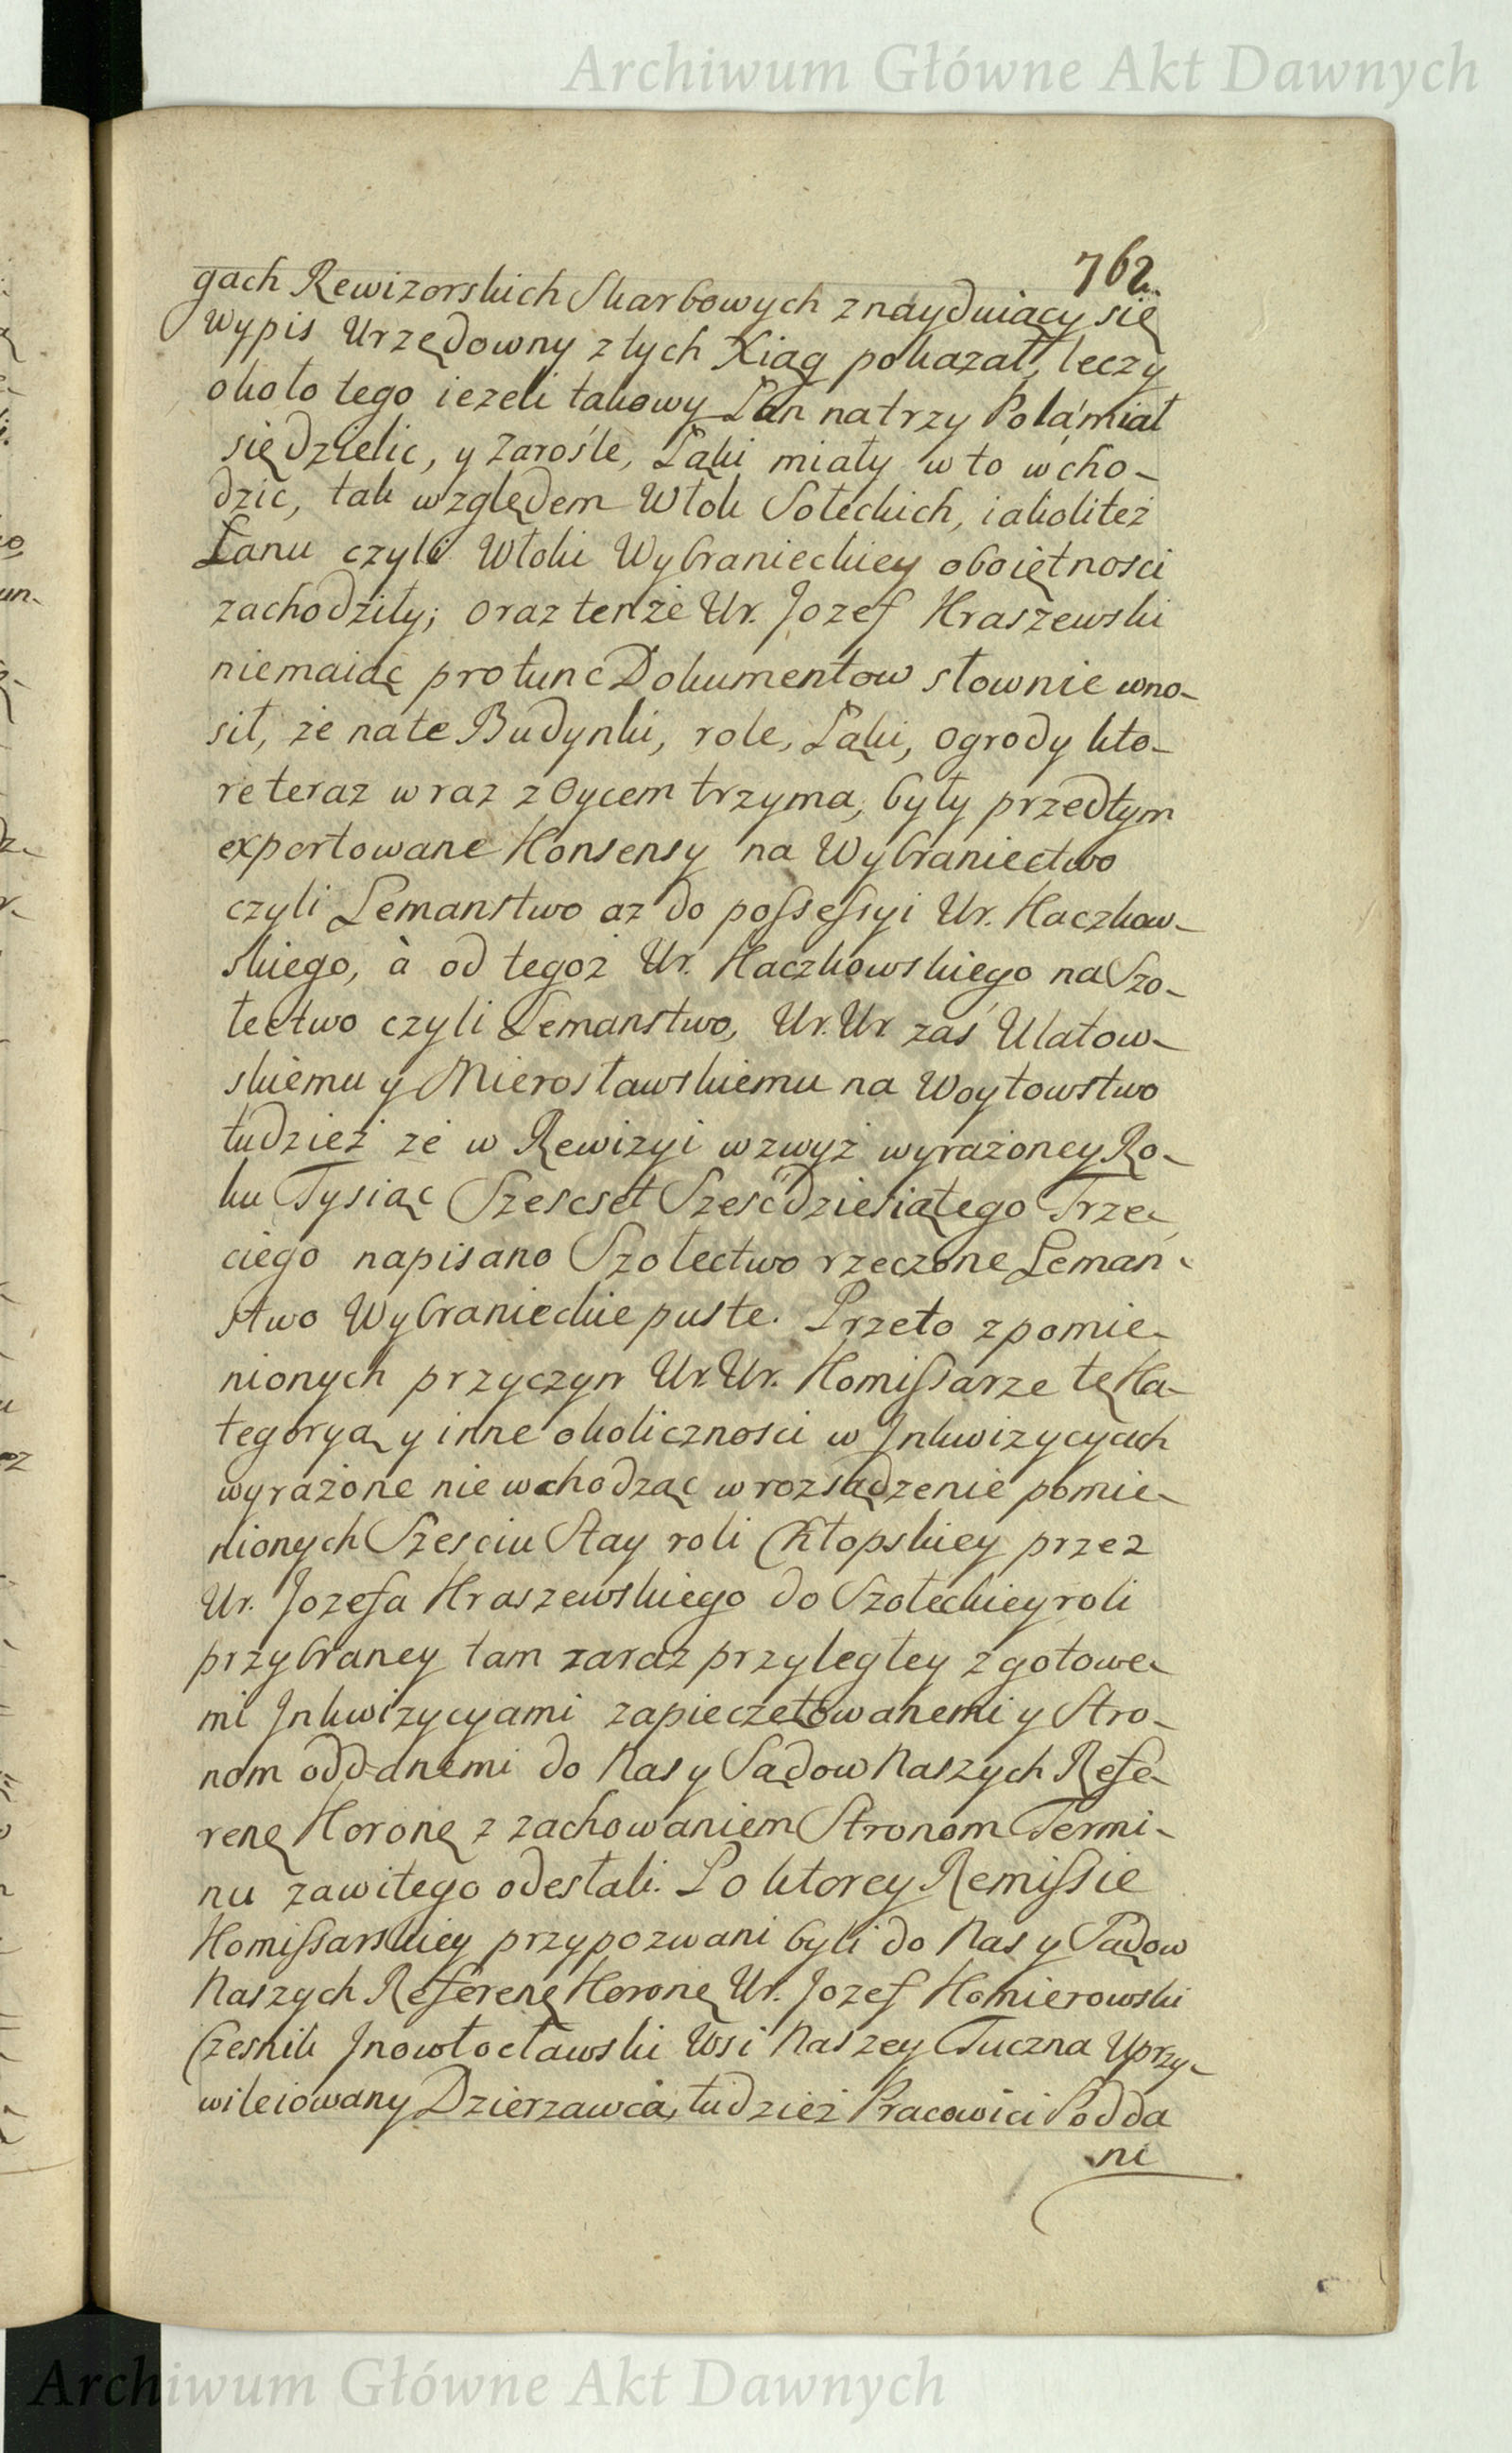 Archiwum Główne Akt Dawnych
762.
gach Rewizorskich Skarbowych znayduiący się
Wypis Urzędowny z tych Xiąg pokazał, leczy
około tego ieżeli takowy Łan na trzy Pola miał
się dzielic, y Zarośle, Łąki miały w to wcho-
dzic, tak względem Włok Sołeckich, iakoliteż
Łanu czyli Włoki Wybranieckiey oboiętności
zachodziły; oraz tenże Ur. Jozef Kraszewski
niemaiąc protunc Dokumentow słownie wno-
sił, że na te Budynki, role, Łąki, ogrody kto-
re teraz wraz z Oycem trzyma, były przedtym
exportowane Konsensy na Wybraniectwo
czyli Lemanstwo az do possessyi Ur. Kaczkow-
skiego, à od tegoż Ur. Kaczkowskiego na Szo-
łectwo czyli Lemanstwo, Ur. Ur. zaś Ulatow-
skiemu y Mierosławskiemu na Woytowstwo
tudzież że w Rewizyi wzwyż wyrażoney Ro-
ku Tysiąc Szescset Sześćdziesiątego Trze-
ciego napisano Szołectwo rzeczone Leman-
stwo Wybranieckie puste. Przeto z pomie-
nionych przyczyn Ur. Ur. Komissarze tę Ka-
tegoryą y inne okoliczności w Inkwizycyach
wyrażone nie wchodząc w rozsądzenie pomie-
nionych Sześciu Stay roli Chłopskiey przez
Ur. Jozefa Kraszewskiego do Szołeckiey roli
przybraney tam zaraz przyległey z gotowe-
mi Inkwizycyami zapieczętowanemi y Stro-
nom oddanemi do Nas y Sądow Naszych Refe-
renę Koronę z zachowaniem Stronom Termi-
nu zawitego odesłali. Po ktorey Remissie
Komissarskiey przypozwani byli do Nas y Sądow
Naszych Referenę Koronę Ur. Jozef Komierowski
Czesnik Inowłocławski Wsi Naszey Tuczna Uprzy-
wileiowany Dzierzawca, tudzież Pracowici Podda
ni
Archiwum Główne Akt Dawnych